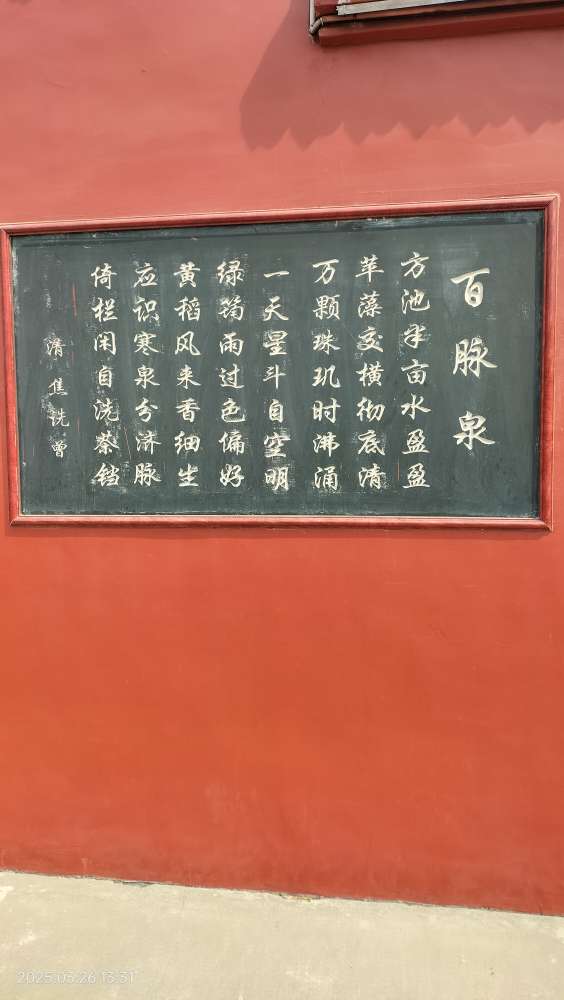 百脉泉
方池半亩水盈盈
苹藻交横彻底清
万颗珠玑时沸涌
一天星斗自空明
绿筠雨过色偏好
黄稻风来香细生
应识寒泉分济脉
倚栏闲自洗茶铛
清 焦诜曾
2025.03.26 13:31